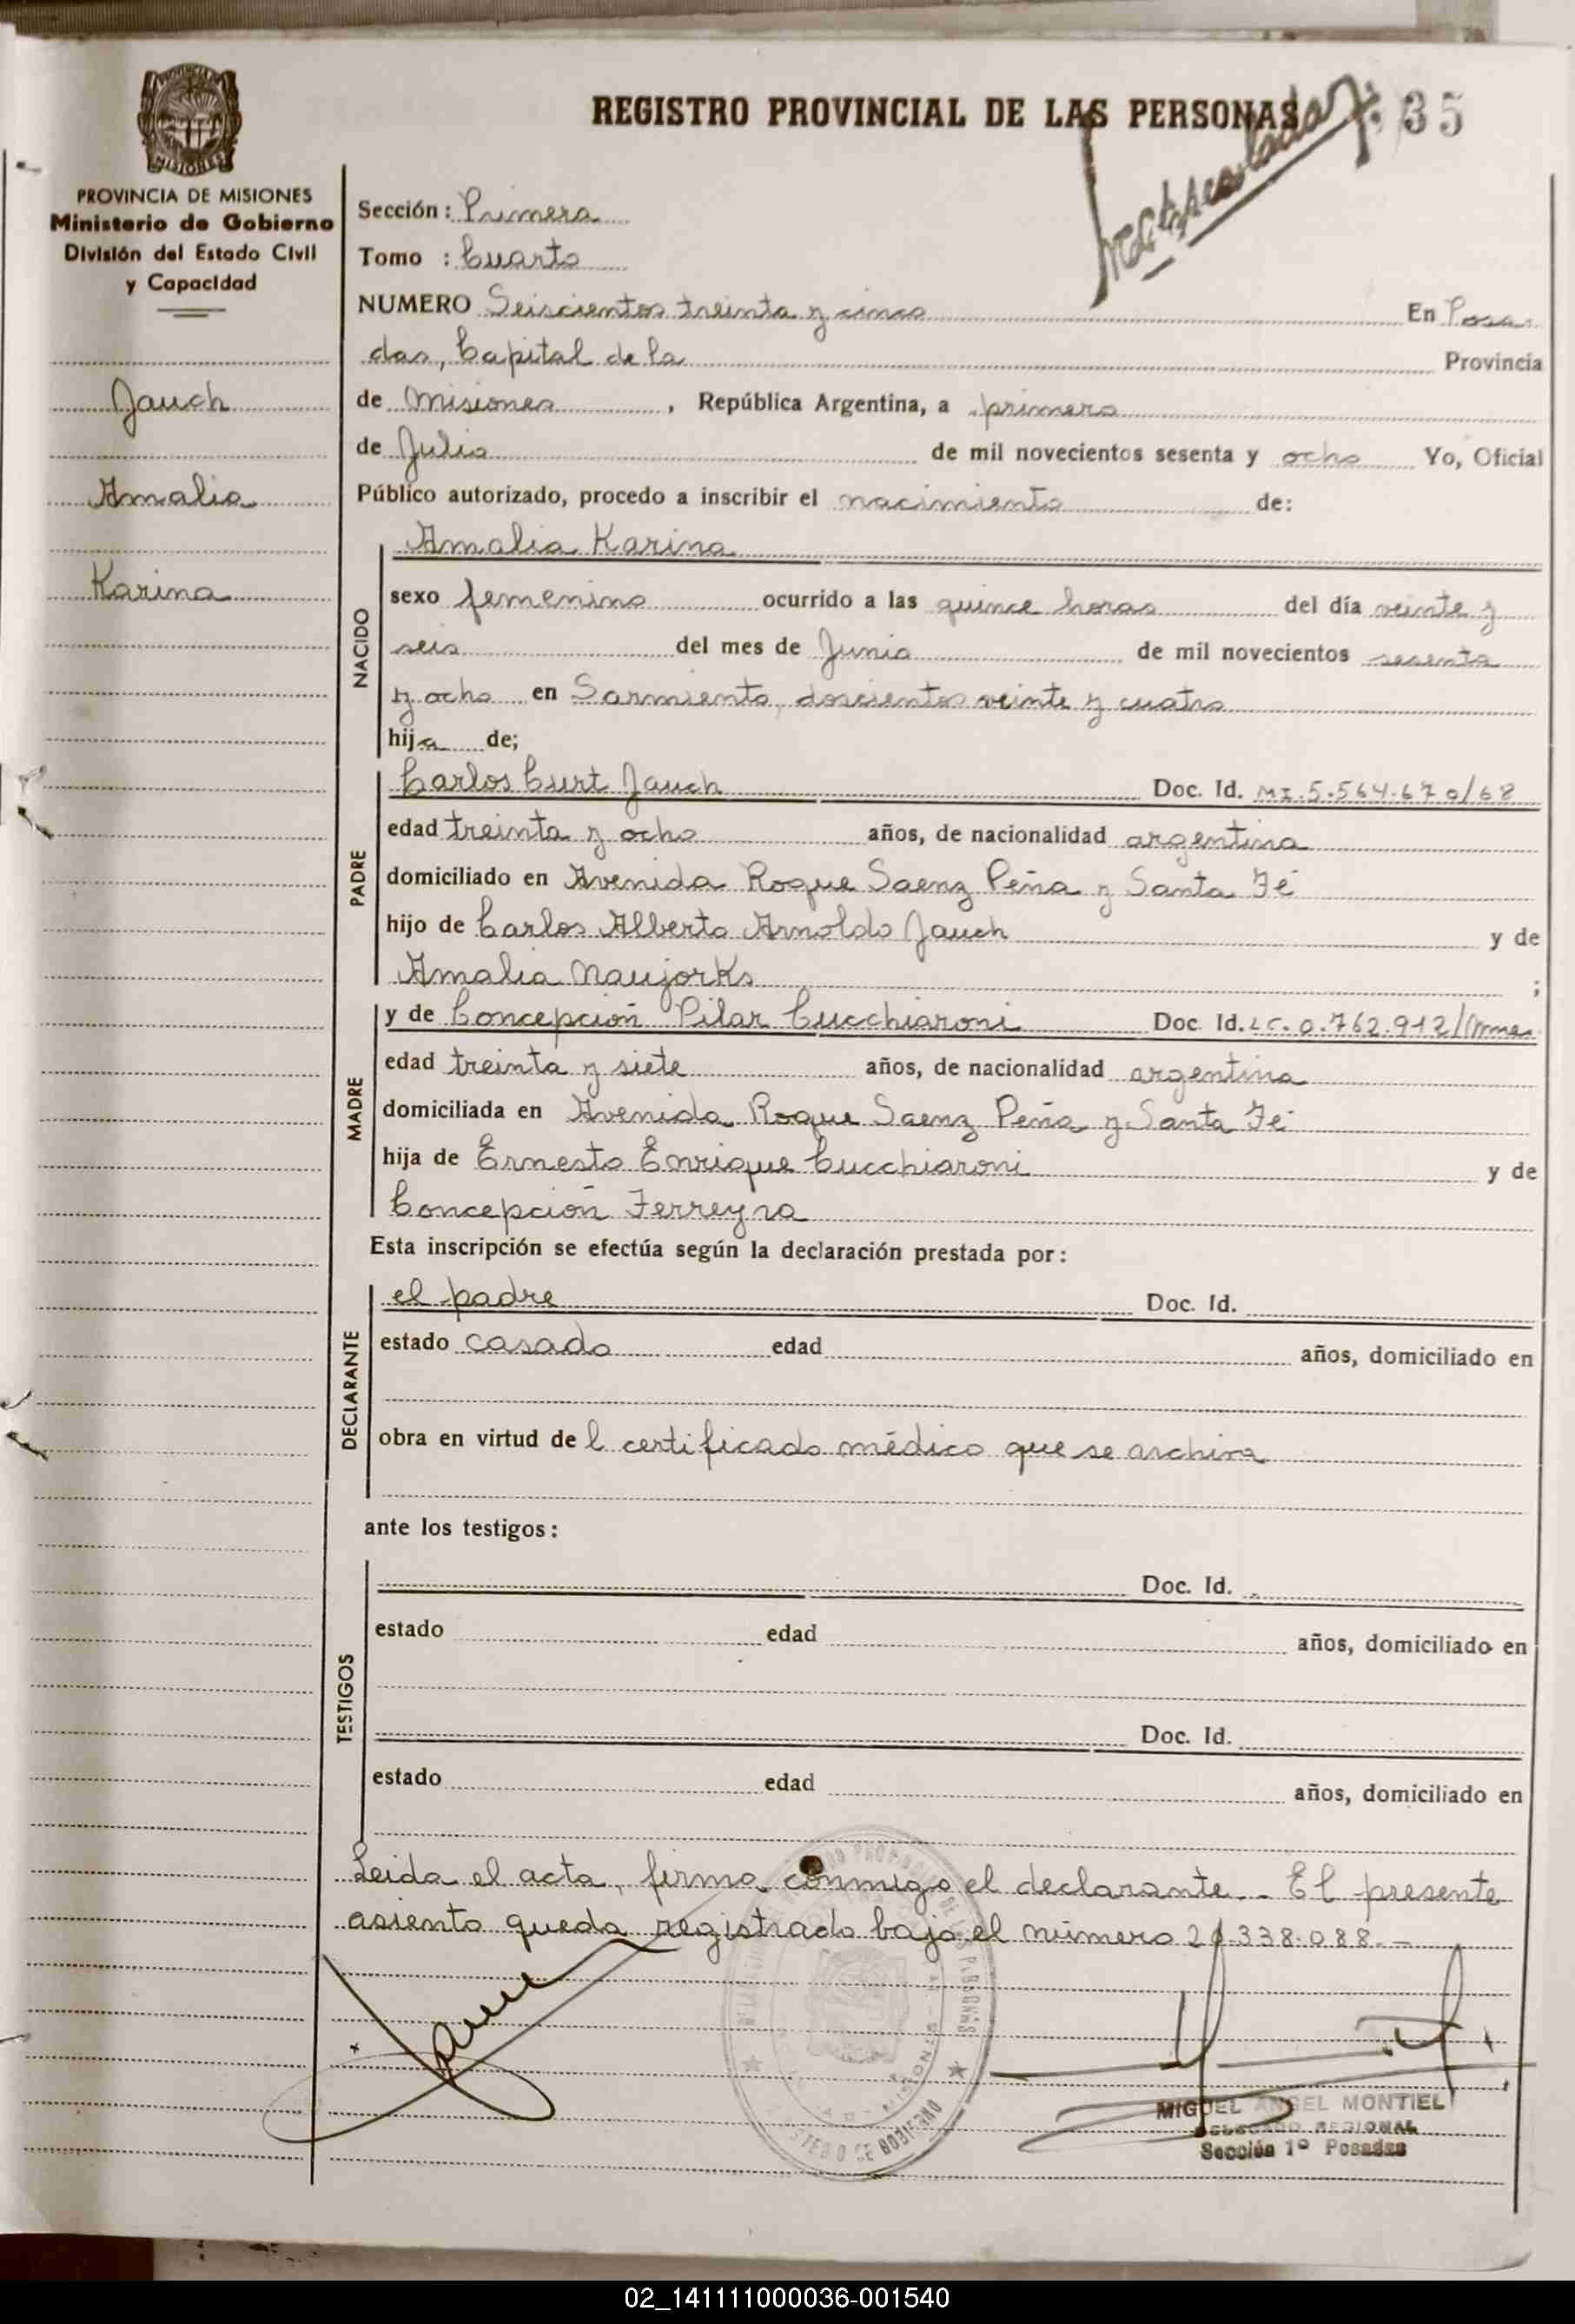 REGISTRO PROVINCIAL DE LAS PERSONAS 35
PROVINCIA DE MISIONES
Ministerio de Gobierno
División del Estado Civil
y Capacidad
Jauch
Amalia
Karina
Sección: Primera
Tomo : Cuarto
NUMERO Seiscientos treinta y cinco En Posa-
das, Capital de la Provincia
de Misiones, República Argentina, a primero
de Julio de mil novecientos sesenta y ocho Yo, Oficial
Público autorizado, procedo a inscribir el nacimiento de:
NACIDO
Amalia Karina
sexo femenino ocurrido a las quince horas del día veinte y
seis del mes de Junio de mil novecientos sesenta
y ocho en Sarmiento, doscientos veinte y cuatro
hija de;
PADRE
Carlos Curt Jauch Doc. Id. MI. 5.564.670/68
edad treinta y ocho años, de nacionalidad argentina
domiciliado en Avenida Roque Saenz Peña y Santa Fé
hijo de Carlos Alberto Arnoldo Jauch y de
Amalia Naujorks ;
MADRE
y de Concepción Pilar Cucchiaroni Doc. Id. LC. 0.762.912/
edad treinta y siete años, de nacionalidad argentina
domiciliada en Avenida Roque Saenz Peña y Santa Fé
hija de Ernesto Enrique Cucchiaroni y de
Concepción Ferreyra
Esta inscripción se efectúa según la declaración prestada por:
DECLARANTE
el padre Doc. Id.
estado casado edad años, domiciliado en
obra en virtud del certificado médico que se archiva
ante los testigos:
TESTIGOS
Doc. Id.
estado edad años, domiciliado en
Doc. Id.
estado edad años, domiciliado en
Leida el acta, firma conmigo el declarante.- El presente
asiento queda registrado bajo el número 20.338.088.-
MIGUEL ANGEL MONTIEL
DELEGADO REGIONAL
Sección 1º Posadas
02_141111000036-001540